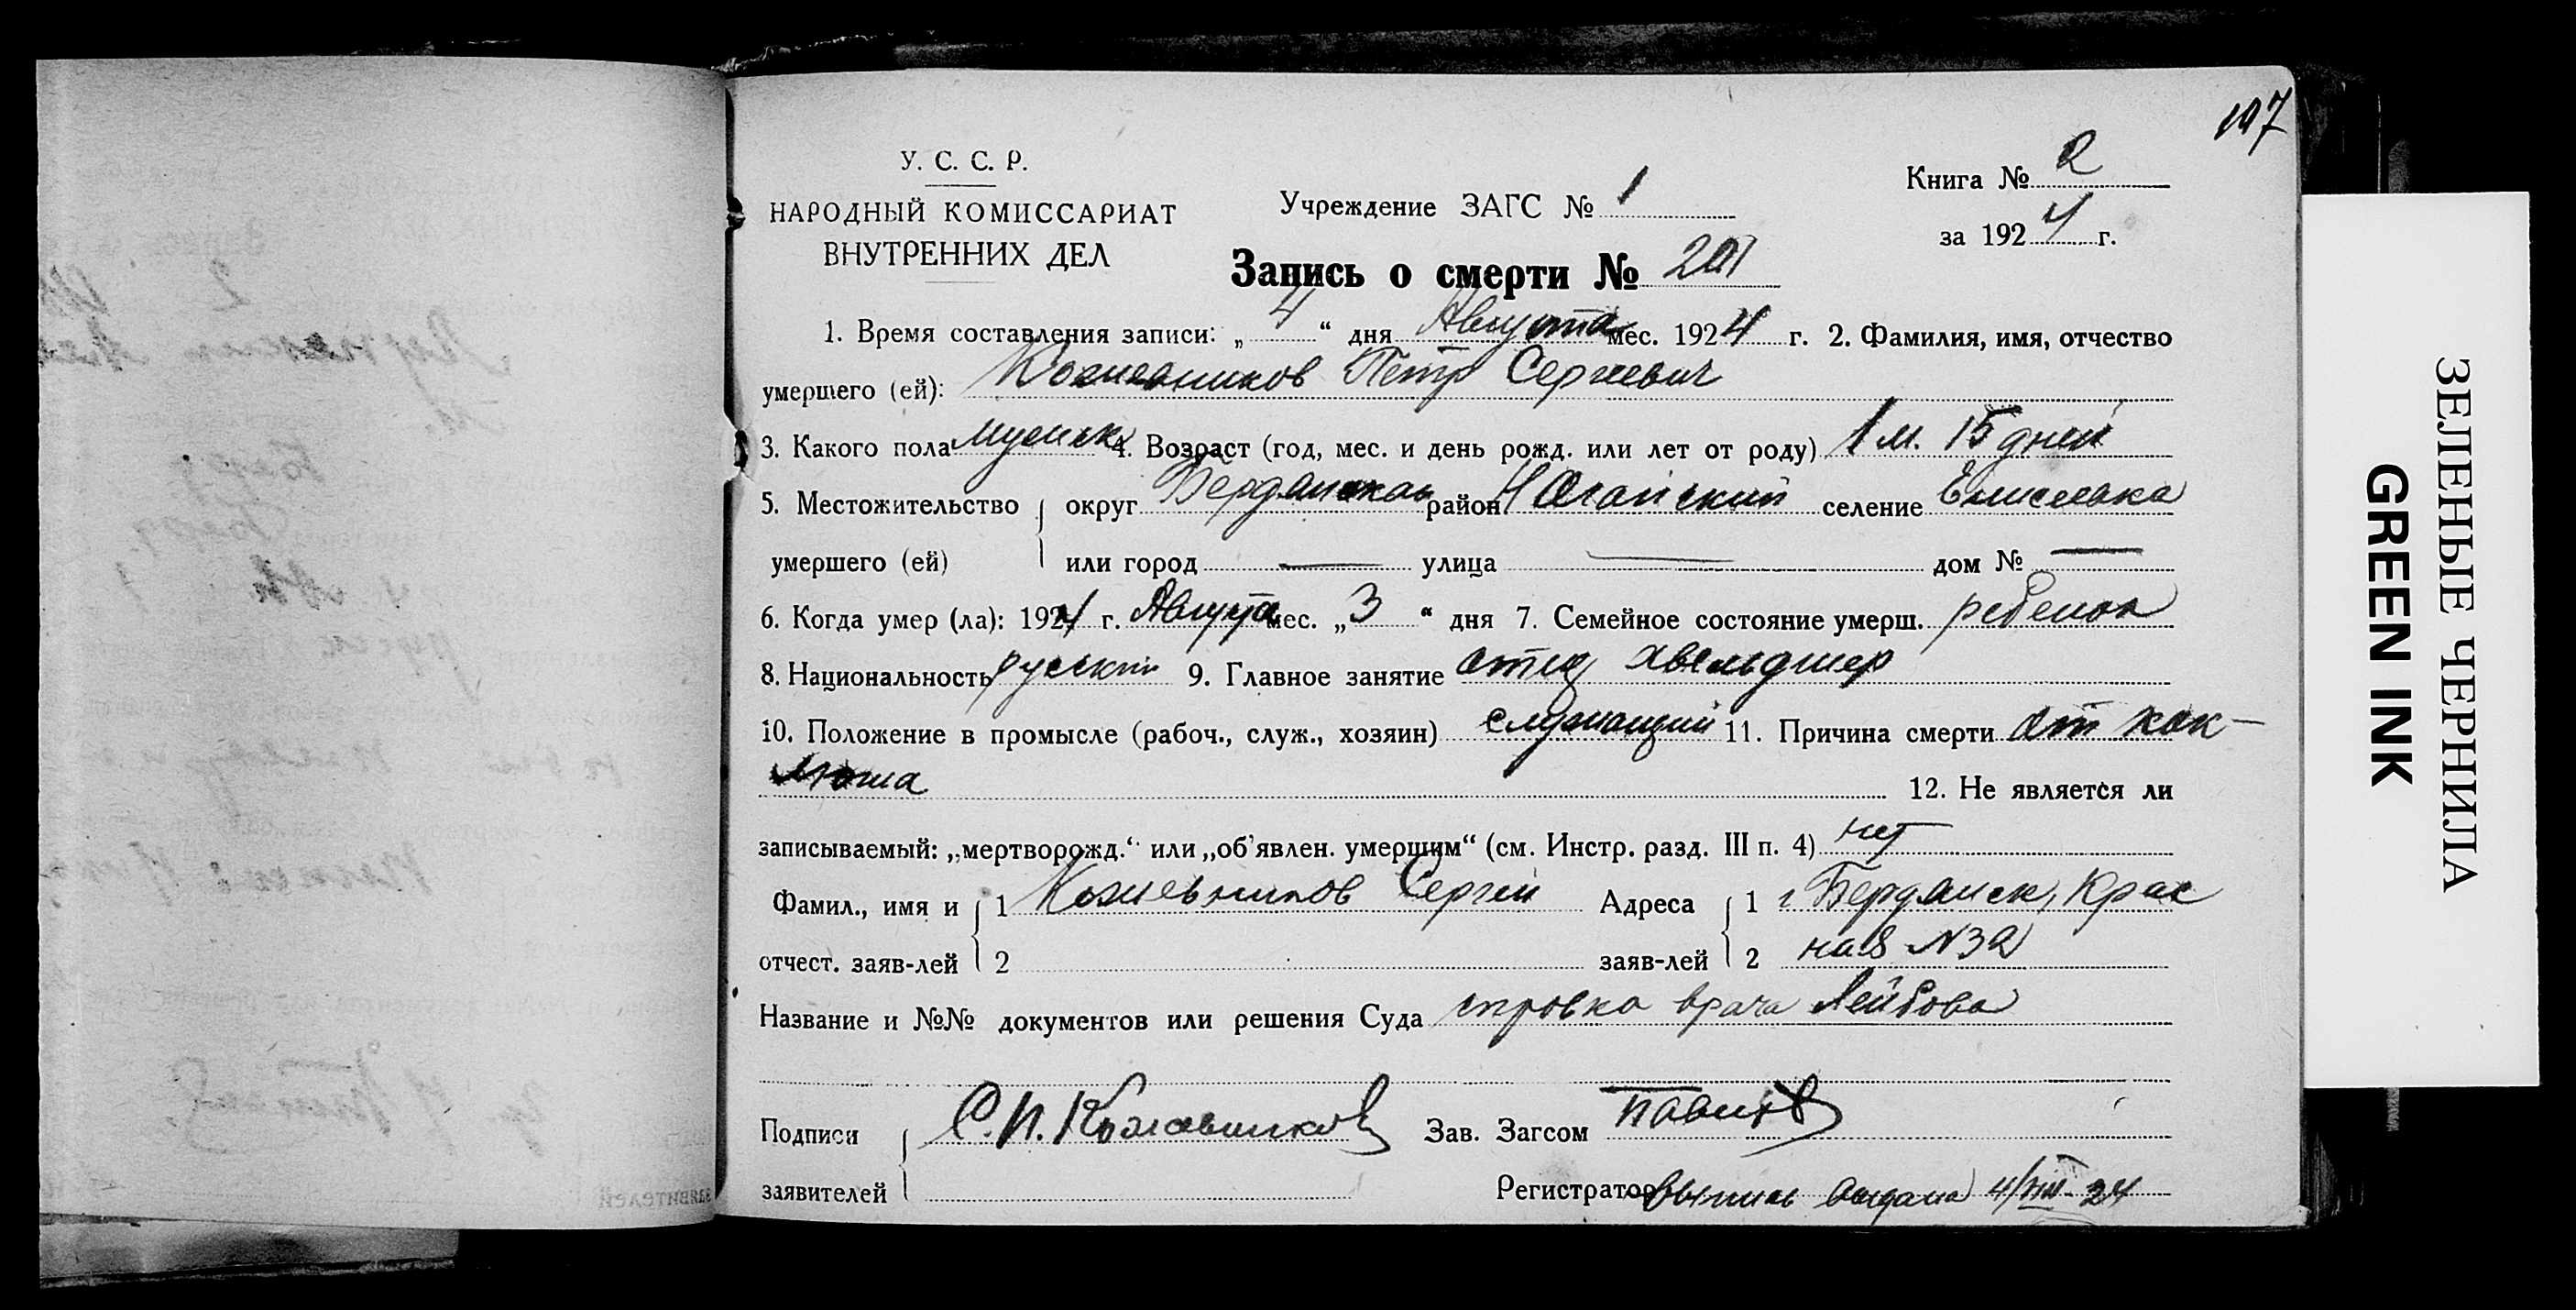 197
У. С. С. Р.
НАРОДНЫЙ КОМИССАРИАТ
ВНУТРЕННИХ ДЕЛ
Учреждение ЗАГС № 1
Книга № 2
за 1924 г.
Запись о смерти № 201
1. Время составления записи: „4“ дня Августа мес. 1924 г. 2. Фамилия, имя, отчество
умершего (ей): Кожевников Петр Сергеевич
3. Какого пола мужск 4. Возраст (год, мес. и день рожд. или лет от роду) 1 м. 15 дней
5. Местожительство округ Бердянский район Ногайский селение
умершего (ей) или город — улица — дом № —
6. Когда умер (ла): 1924 г. Августа мес. „3“ дня 7. Семейное состояние умерш. ребенок
8. Национальность русский 9. Главное занятие отца хвельдшер
10. Положение в промысле (рабоч., служ., хозяин) служащий 11. Причина смерти от кок-
люша
12. Не является ли
записываемый: „мертворожд.“ или „об'явлен. умершим“ (см. Инстр. разд. III п. 4) нет
Фамил., имя и 1 Кожевников Сергей Адреса 1 г Бердянск, Крас
отчест. заяв-лей 2 заяв-лей 2 ная №32
Название и №№ документов или решения Суда справка врача Лейбова
Подписи С. П. Кожевников Зав. Загсом
заявителей Регистратор выпись выдана 4/VIII-24
заявителей
ЗЕЛЕНЫЕ ЧЕРНИЛА
GREEN INK